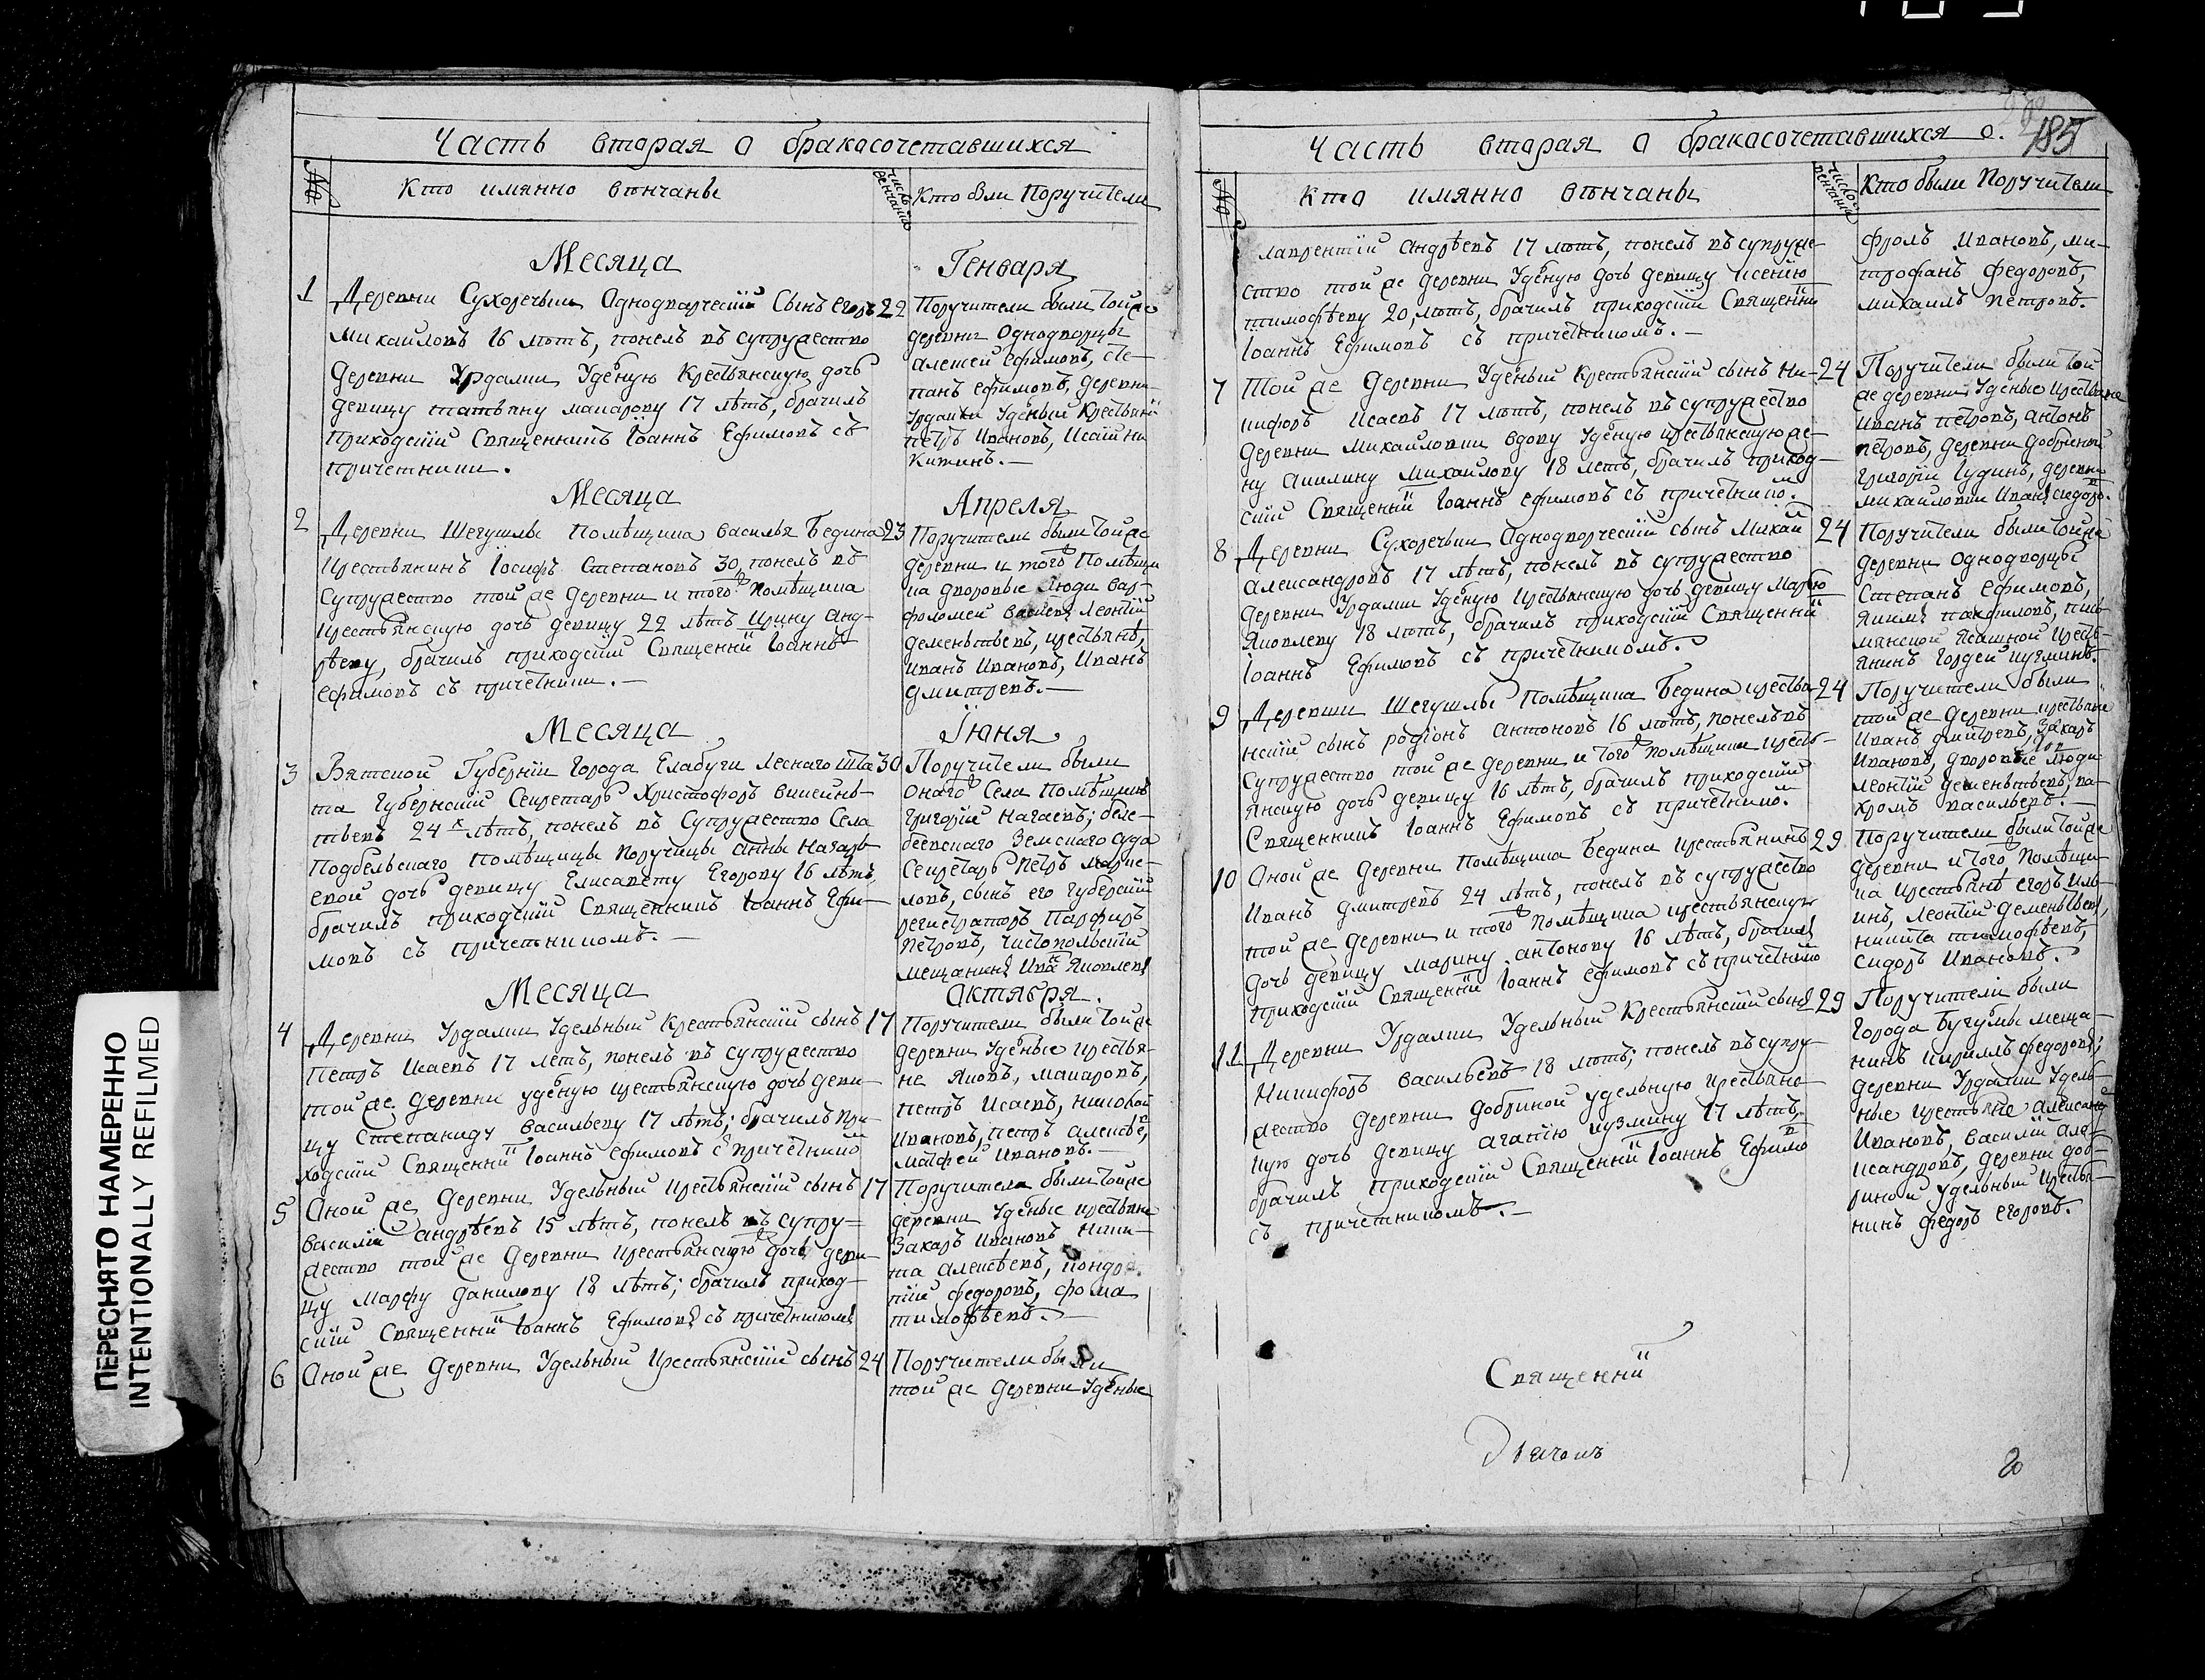 ПЕРЕСНЯТО НАМЕРЕННО
INTENTIONALLY REFILMED
Часть вторая о бракосочетавшихся
№
Кто имянно вѣнчаны
число венчания
Кто были Поручители
Месяца Генваря
1 Деревни Сухоречьки Однодворческій Сынъ Егоръ 22
Михаиловъ 16 лѣтъ, понелъ въ супружество
Деревни Урдалки Удѣную Крестьянскую дочь
девицу татьяну макарову 17 лѣтъ, брачилъ
Приходскій Священникъ Іоаннъ Ефимовъ съ
причетники.
Поручители были той же
деревни Однодворцы
алексей ефимовъ, сте-
панъ ефимовъ, деревни
Урдалки Удѣный Крестьяни
петръ Ивановъ, Исай ни
китинъ.
Месяца Апреля
2 Деревни Шегушлы Помѣщика василья Бедина 23
Крестьянинъ Іосифъ Степановъ 30, понелъ въ
Супружество той же деревни и того Помѣщика
Крестьянскую дочь девицу 22 лѣтъ Ирину анд-
рѣеву, брачилъ приходскій Священни Іоаннъ
Ефимовъ съ причетники.
Поручители были той же
деревни и того Помѣщи
ка дворовые Люди вар-
фоломеи Леонтій
деменьтьевъ, крестьянѣ,
иванъ Ивановъ, Иванъ
дмитревъ.
Месяца Іюня
3 Вятской Губерніи Города Елабуги Леснаго Шта 30
та Губернскій Секретарь Христофоръ викеньт-
тьевъ 24 х лѣтъ, понелъ въ Супружество Села
Подбельскаго помѣщицы поручицы анны нагае-
евой дочь девицу Елисавету Егорову 16 лѣтъ,
брачилъ приходскій Священникъ Іоаннъ Ефи-
мовъ съ причетникомъ.
Поручители были
онаго Села Помѣщикъ
Григорій нагаевъ, беле-
беевскаго Земскаго суда
Секретарь Петръ
ловъ, сынъ его Губернскій
регистраторъ Парфиръ
Петровъ, Чистопольскій
мещанинъ Ива Яковлевъ
Месяца Октября.
4 Деревни Урдалки Удельный Крестьянскій сынъ 17
Петръ Исаевъ 17 летъ, понелъ въ супружество
той же деревни удѣную крестьянскую дочь деви-
цу Степаниду васильеву 17 лѣтъ; брачилъ при-
ходскій Священни Іоаннъ Ефимовъ с причетнико
Поручители были той же
деревни Удѣные крестья-
не Яковъ, макаровъ,
петръ Исаевъ, николай
Ивановъ, петръ алексѣе,
матфей Ивановъ.
5 Оной же Деревни Удельный крестьянскій сынъ 17
василій андрѣевъ 15 лѣтъ, понелъ въ супру-
жество той же деревни крестьянскую дочь деви-
цу марфу данилову 18 лѣтъ; брачилъ приход-
скій Священни Іоаннъ Ефимовъ съ причетникомъ
Поручители были той же
деревни Удѣные крестьяне
Захаръ Ивановъ ники-
та алексѣевъ, кондра
тій федоровъ, фома
тимофѣевъ.
6 Оной же Деревни Удельный Крестьянскій сынъ 24
Поручители были
той же деревни Удѣные
Часть вторая о бракосочетавшихся о.
185
№
Кто имянно вѣнчаны
число венчания
Кто были Поручители
лаврентій андрѣевъ 17 лѣтъ, понелъ въ супруже-
ство той же деревни Удѣную дочь девицу ксенію
тимофѣеву 20, лѣтъ, брачилъ приходскій Священни
Іоаннъ Ефимовъ съ причетникомъ.
фролъ ивановъ, ми-
трофанъ федоровъ,
михаилъ петровъ.
7 Той же Деревни Удѣный Крестьянскій сынъ ни- 24
кифоръ Исаевъ 17 лѣтъ, понелъ въ супружество
деревни михаиловки вдову Удѣную крестьянскую же-
ну акилину михаилову 18 летъ, брачилъ приход-
скій Священни Іоаннъ ефимовъ съ причетнико.
Поручители были той
же деревни Удѣные крестьяне
иванъ петровъ, антонъ
петровъ, деревни добриной
григорій Іудинъ, деревни
михаиловки иванъ сидоро.
8 Деревни Сухоречьки Однодворческій сынъ Михаи 24
Александровъ 17 лѣтъ, понелъ въ супружество
Деревни Урдалки Удѣную крестьянскую дочь девицу Марью
Яковлеву 18 лѣтъ, брачилъ приходскій Священни
Іоаннъ Ефимовъ съ причетникомъ.
Поручители были той же
деревни Однодворцы
Степанъ Ефимовъ,
Якимъ панфиловъ, кись-
мянской Ясашной кресть-
янинъ Гордей кузминъ.
9 Деревни Шегушлы Помѣщика Бедина крестья- 24
нскій сынъ родіонъ антоновъ 16 лѣтъ, понелъ въ
Супружество той же деревни и того помѣщика кресть-
янскую дочь девицу 16 лѣтъ, брачилъ приходскій
Священникъ Іоаннъ Ефимовъ съ причетнико.
Поручители были
той же деревни крестьяне
иванъ дмитревъ, Захаръ
Ивановъ, дворовые люди
леонтій деменьтьевъ, ва-
хромъ васильевъ.
10 Оной же деревни Помѣщика Бедина крестьянинъ 29
Иванъ дмитревъ 24 лѣтъ, понелъ въ супружество
той же деревни и того Помѣщика крестьянскую
дочь девицу марину антонову 16 лѣтъ, брачилъ
приходскій Священни Іоаннъ ефимовъ съ причетнико
Поручители были той же
деревни и того Помѣщи
ка крестьянѣ егоръ иль-
инъ, леонтій деменьтьевъ,
никита тимофѣевъ,
сидоръ Ивановъ.
11 Деревни Урдалки Удельный Крестьянскій сынъ 29
Никифоръ васильевъ 18 лѣтъ; понелъ въ супру-
жество деревни добриной удельную крестьянс-
кую дочь девицу агафію кузмину 17 лѣтъ,
брачилъ приходскій Священни Іоаннъ Ефимо
съ причетникомъ.
Поручители были
города бугульмы меща-
нинъ кирилъ федоровъ;
деревни Урдалки Удель-
ные крестьяне
Ивановъ, василій але-
ксандровъ, деревни доб-
риной удельный крестья-
нинъ федоръ егоровъ.
Священни
Дьячокъ